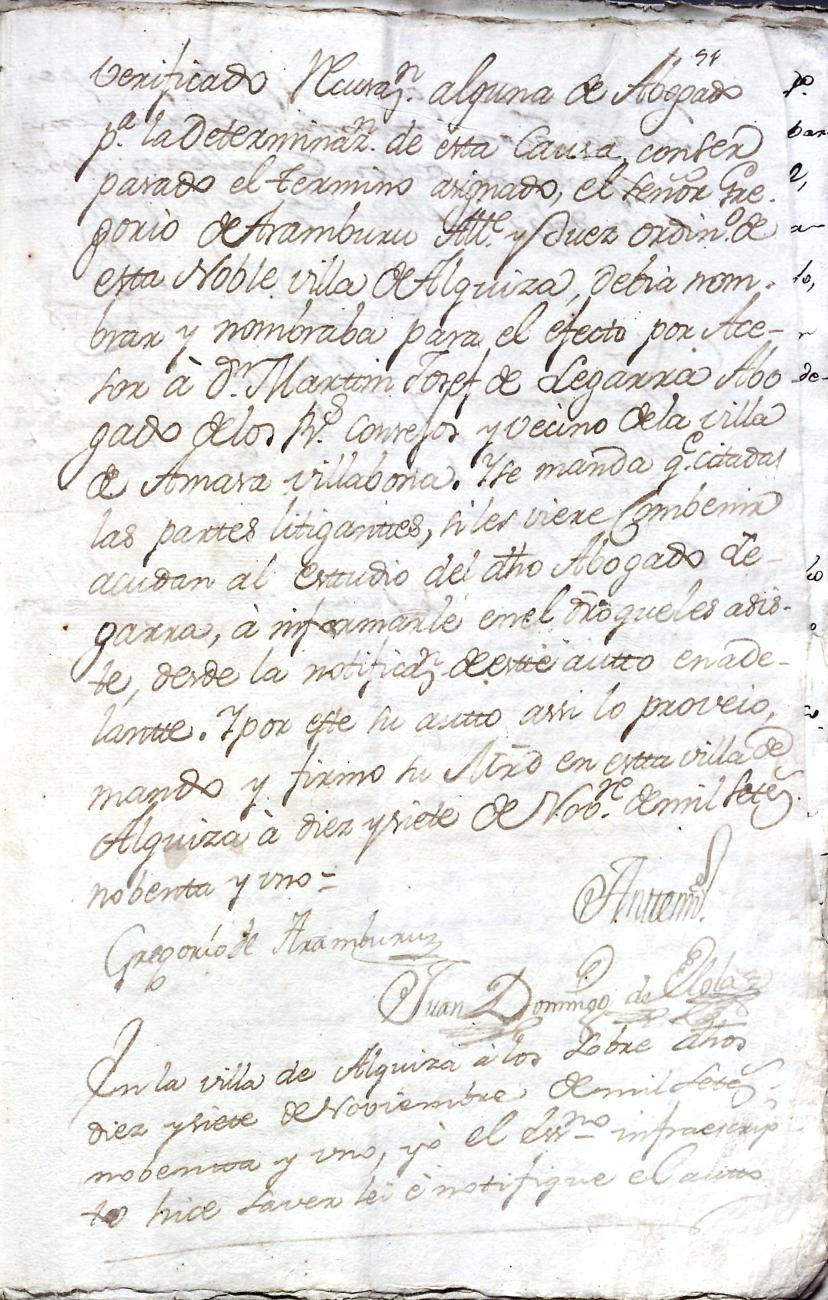 verificado Recusazn. alguna de Abogado
pa. la Determinazn. de esta Causa, con ser
pasado el termino asignado, el señor Gre-
gorio de Aramburu Alle. y Juez ordino. de
esta Noble villa de Alquiza, debia nom-
brar y nombraba para el efecto por Ace-
sor à Dn. Martin Josef de Legarra Abo
gado delos Rs. Consejos y vecino dela villa
de Amasa villabona. Yse manda qe. citadas
las partes litigantes, siles viere Combenir
acudan al Esttudio del dho Abogado Le-
garra, à informarle enel dro queles asis-
te, desde la notificazn. de estte autto enade-
lantte. Ypor este su autto assi lo proveio,
mando y firmo su Mrd en estta villa de
Alquiza à diez ysiete de Novre. demil Setes.
nobenta y uno =
Anttemi.
Gregorio de Aramburu
Juan Domingo de Elola
En la villa de Alquiza à los Sobre dhos
diez ysiete de Noviembre de mil Setes.
nobentta y uno, yo el Essno. infraescrip
to hice saver lei è notifique el autto